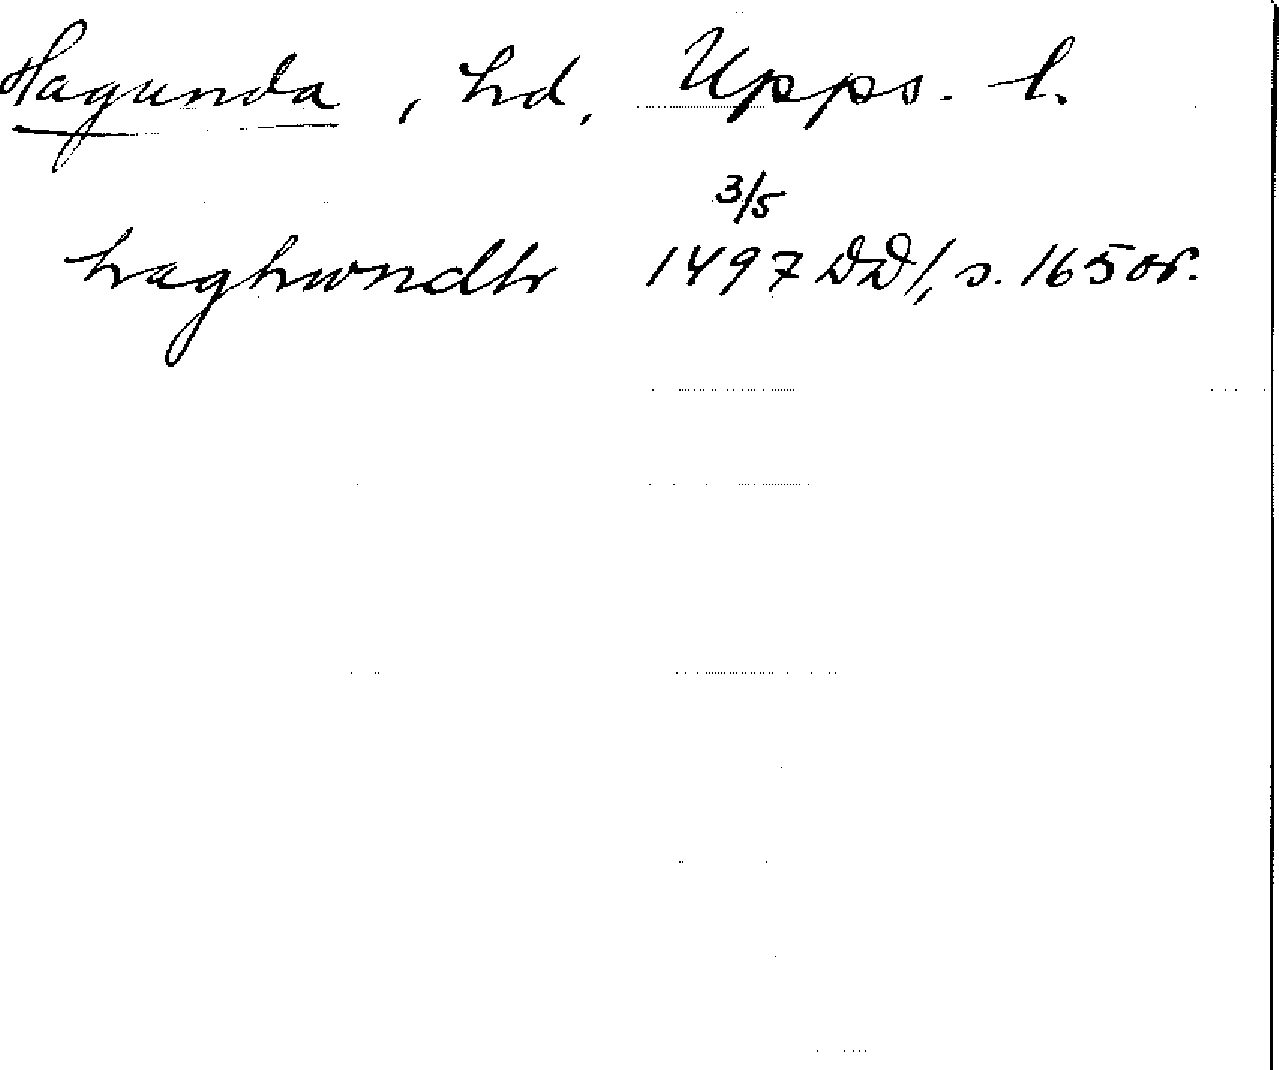 Hagunda, hd, Upps. l.
3/5
haghwndh 1497 DD1, s. 165 or.